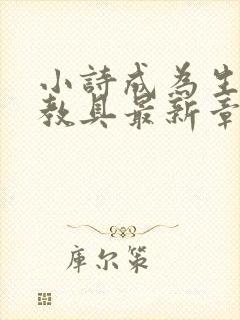 小詩成為生
教具最新章
庫尔策